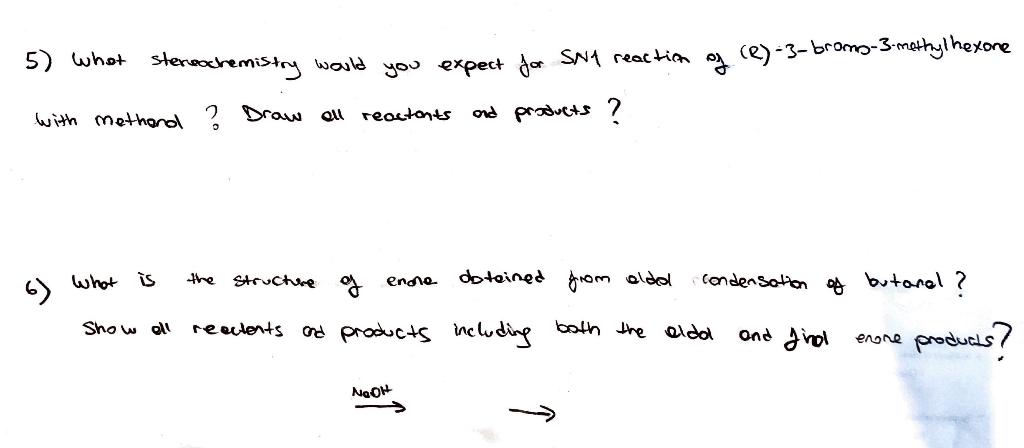 5) What stereochemistry would you expect for SN1 reaction of (R)-3-bromo-3-methylhexane
with methanol? Draw all reactants and products?
6) What is the structure of enone obtained from aldol condensation of butanal?
Show all reactants and products including both the aldol and final enone products?
NaOH
→ →